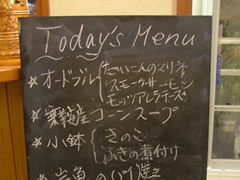 Today's Menu
★オードブル
だいこんのくりネ
スモークサーモン
モッツアレラチーズ
産コーンスープ
★小鉢
きのこ
ふきの煮付け
魚のパイ